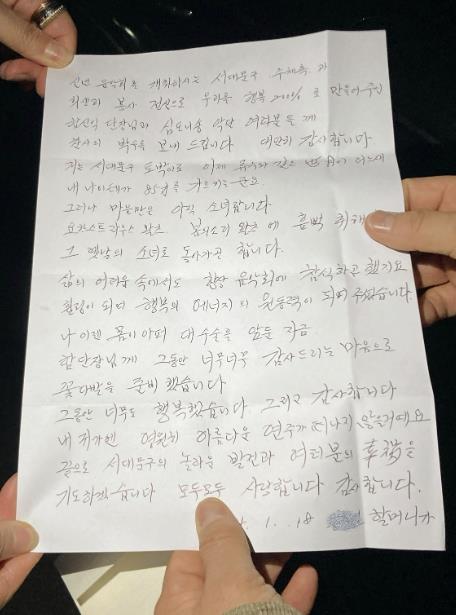 신년 음악회를 개최하시는 서대문구 주최측과
최선의 봉사 정신으로 우리를 행복 200% 로 만들어주신
함신익 단장님과 심포니송 악단 여러분들께
감사의 박수를 보내 드립니다 대단히 감사합니다
저는 서대문구 토박이로 이제 유수와 같은 세월이 어느새
내 나이테가 를 가르키는군요
그러나 마음만은 아직 소녀랍니다
요한스트라우스 왈츠 봄의소리 왈츠에 흠뻑 취해
그 옛날의 소녀로 돌아가곤 합니다.
삶의 어려움 속에서도 항상 음악회에 참석하곤 했지요
힐링이 되며 행복의 에너지의 원동력이 되어 주었습니다.
나 이젠 몸이 아파 대수술을 앞둔 지금.
함단장님께 그동안 너무너무 감사드리는 마음으로
꽃다발을 준비했습니다
그동안 너무도 행복했습니다 그리고 감사합니다
내 귀가엔 영원히 아름다운 연주가 떠나지 않을거예요
끝으로 서대문구의 놀라운 발전과 여러분의 幸福을
기도하겠습니다 모두모두 사랑합니다 감사합니다.
1. . 18 할머니가